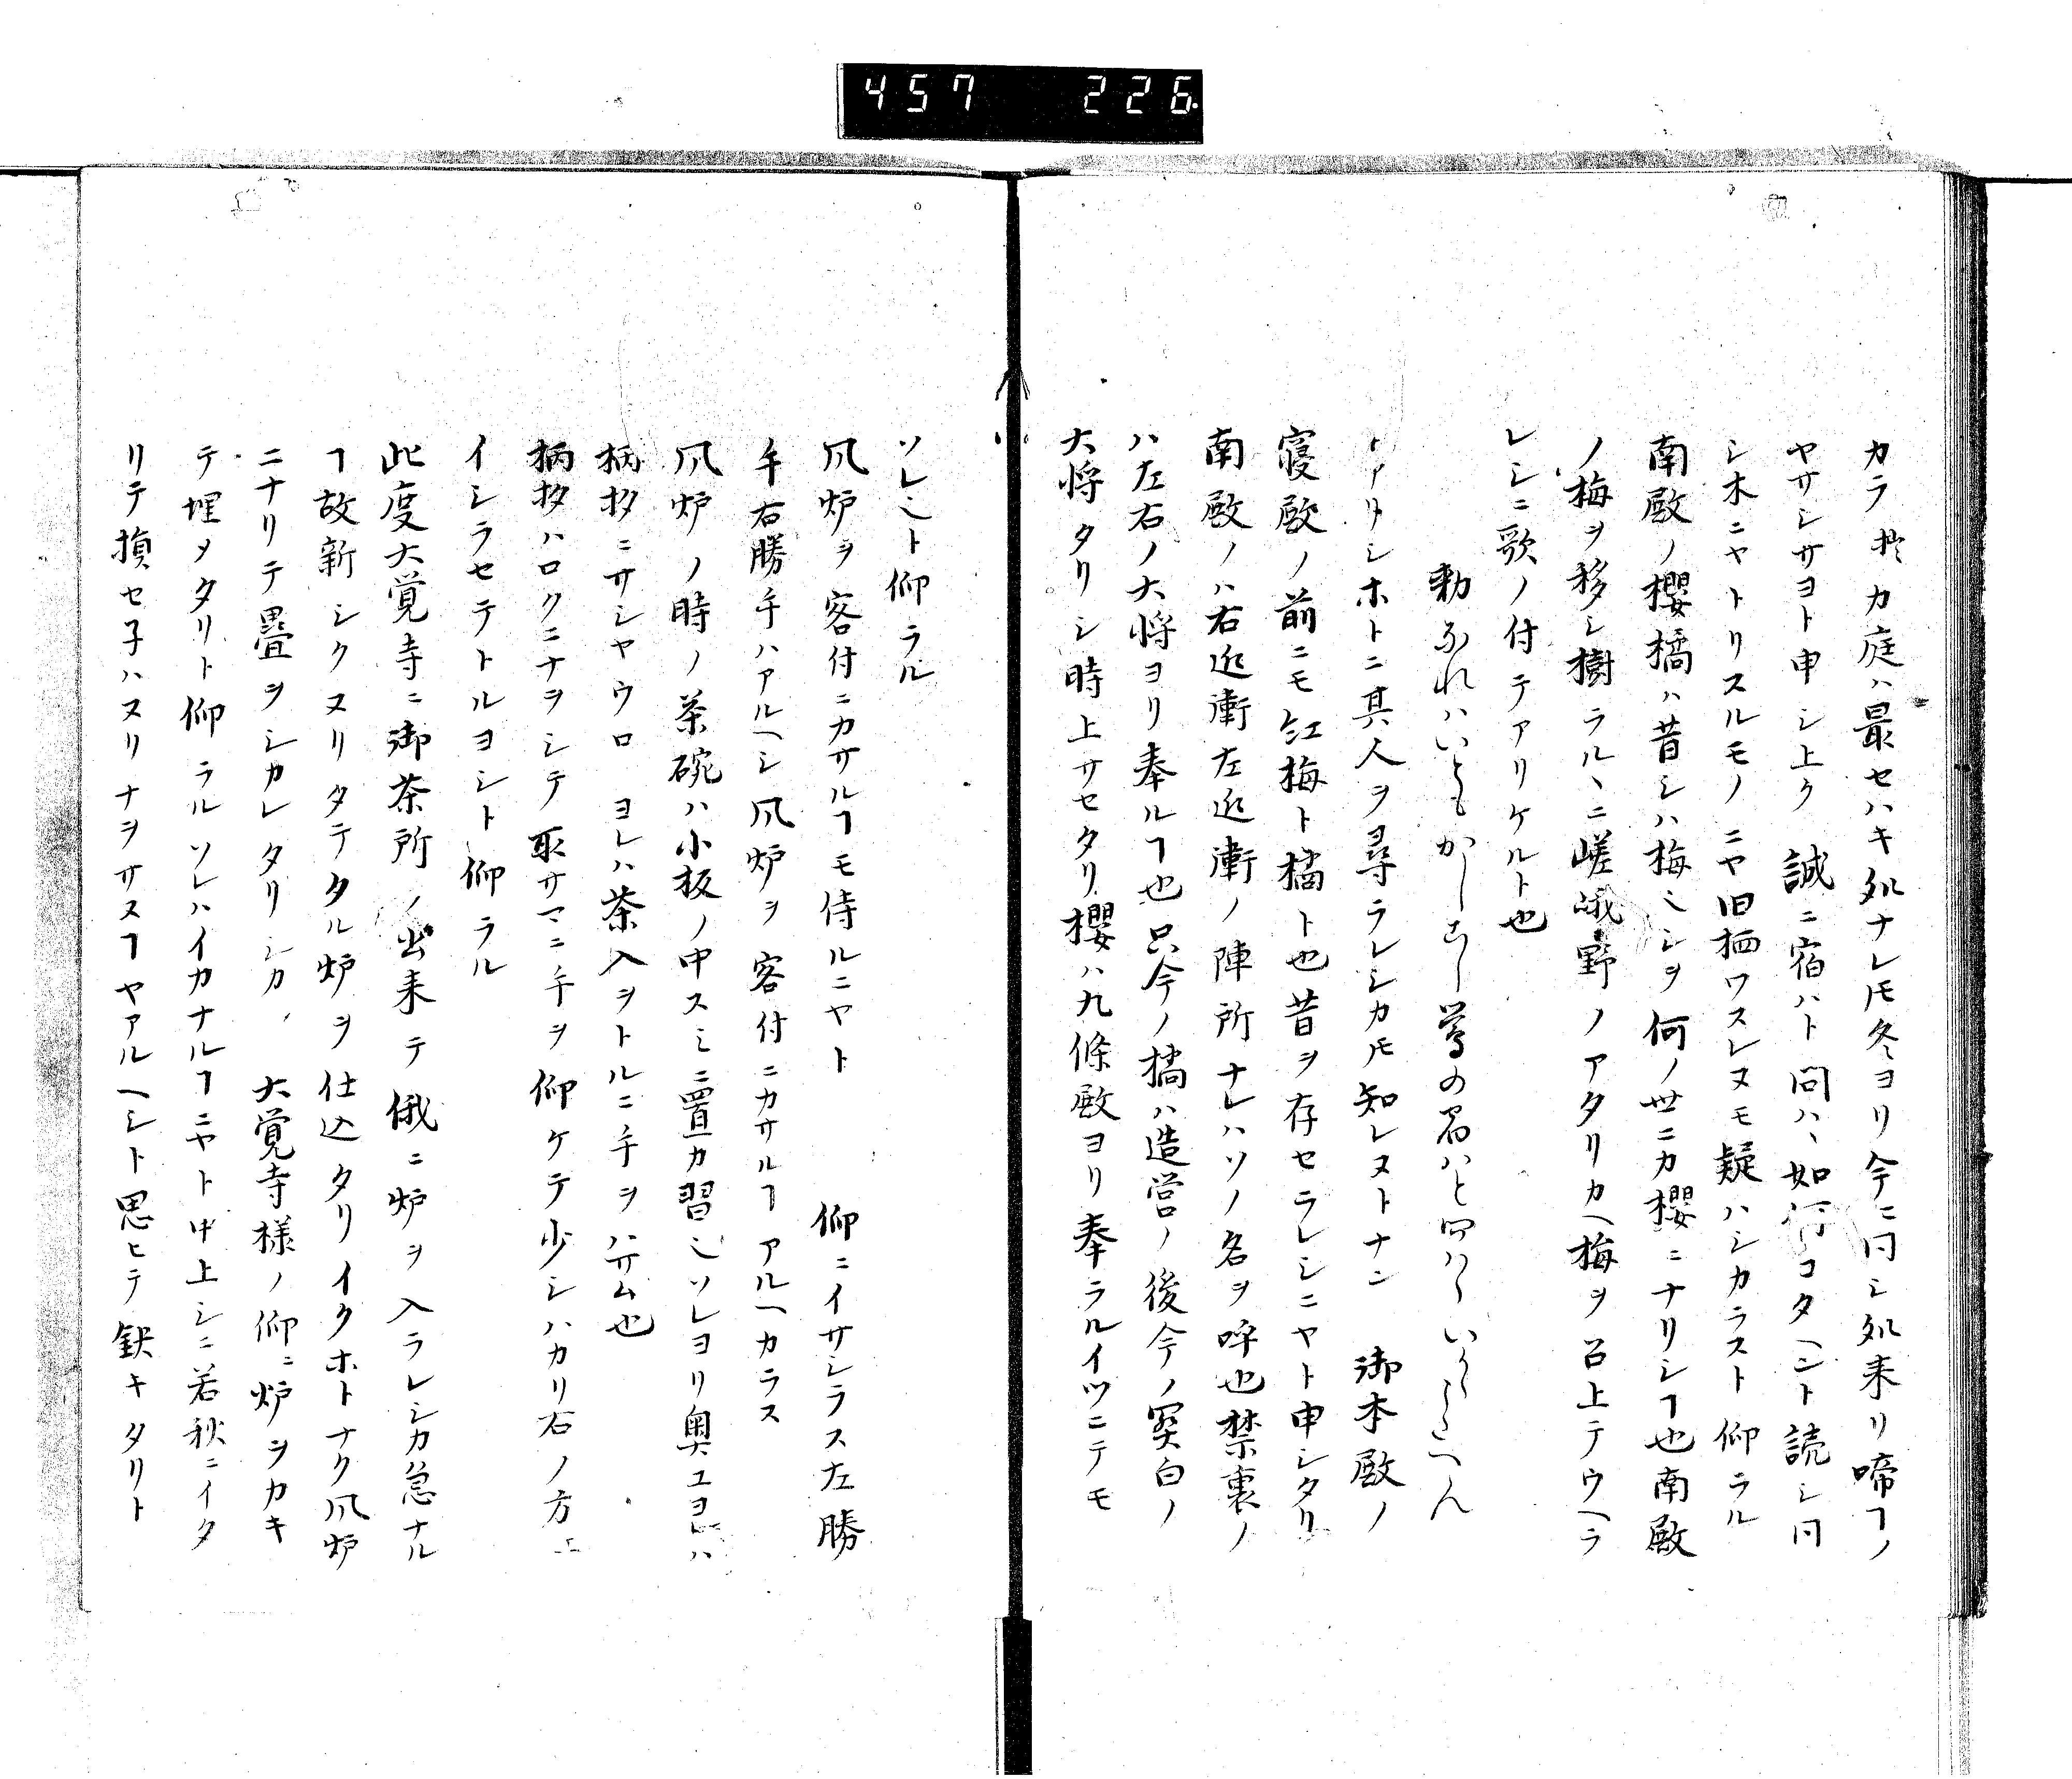 457 226
カラ拙カ庭ハ最セハキ処ナレ𪜈冬ヨリ今ニ同シ処来リ啼ヿノ
ヤサシサヨト申シ上ク 誠ニ宿ハト問ハヽ如何コタヘント読シ同
シ木ニヤトリスルモノニヤ旧栖ワスレヌモ疑ハシカラスト 仰ラル
南殿ノ櫻橘ハ昔シハ梅ニシヲ何ノ世ニカ櫻ニナリシヿ也南殿
ノ梅ヲ移シ樹ラルヽニ嵯峨野ノアタリカヘ梅ヲ召上テウヘラ
レシニ歌ノ付テアリケルト也
勅なれハいともかしこし鶯の宿ハと問ハヽいかゝこたへん
トアリシホトニ其人ヲ尋ラレシカ𪜈知レヌトナン 御本殿ノ
寝殿ノ前ニモ紅梅ト橘ト也昔ヲ存セラレシニヤト申シタリ
南殿ノハ右近衛左近衛ノ陣所ナレハソノ名ヲ呼也禁裏ノ
ハ左右ノ大将ヨリ奉ルヿ也只今ノ橘ハ造営ノ後今ノ関白ノ
大将タリシ時上サセタリ櫻ハ九條殿ヨリ奉ラルイツニテモ
ソレ〻ト仰ラル
风炉ヲ客付ニカサルヿモ侍ルニヤト 仰ニイサシラス左勝
手右勝手ハアルヘシ风炉ヲ客付ニカサルヿアルヘカラス
风炉ノ時ノ茶碗ハ小板ノ中スミニ置カ習〻ソレヨリ奥エヨレハ
柄杓ニサシヤウロヨレハ茶入ヲトルニ手ヲハサム也
柄杓ハロクニナヲシテ取サマニ手ヲ仰ケテ少シハカリ右ノ方上
イシラセテトルヨシト仰ラル
此度大覚寺ニ御茶所ノ出来テ俄ニ炉ヲ入ラレシカ急ナル
ヿ故新シクヌリタテタル炉ヲ仕込タリイクホトナク风炉
ニナリテ畳ヲシカレタリシカ、大覚寺様ノ仰ニ炉ヲカキ
テ埋メタリト仰ラルソレハイカナルヿニヤト申上シニ若秋ニイタ
リテ損セ子ハヌリナヲサスヿヤアルヘシト思ヒテ鈌キタリト